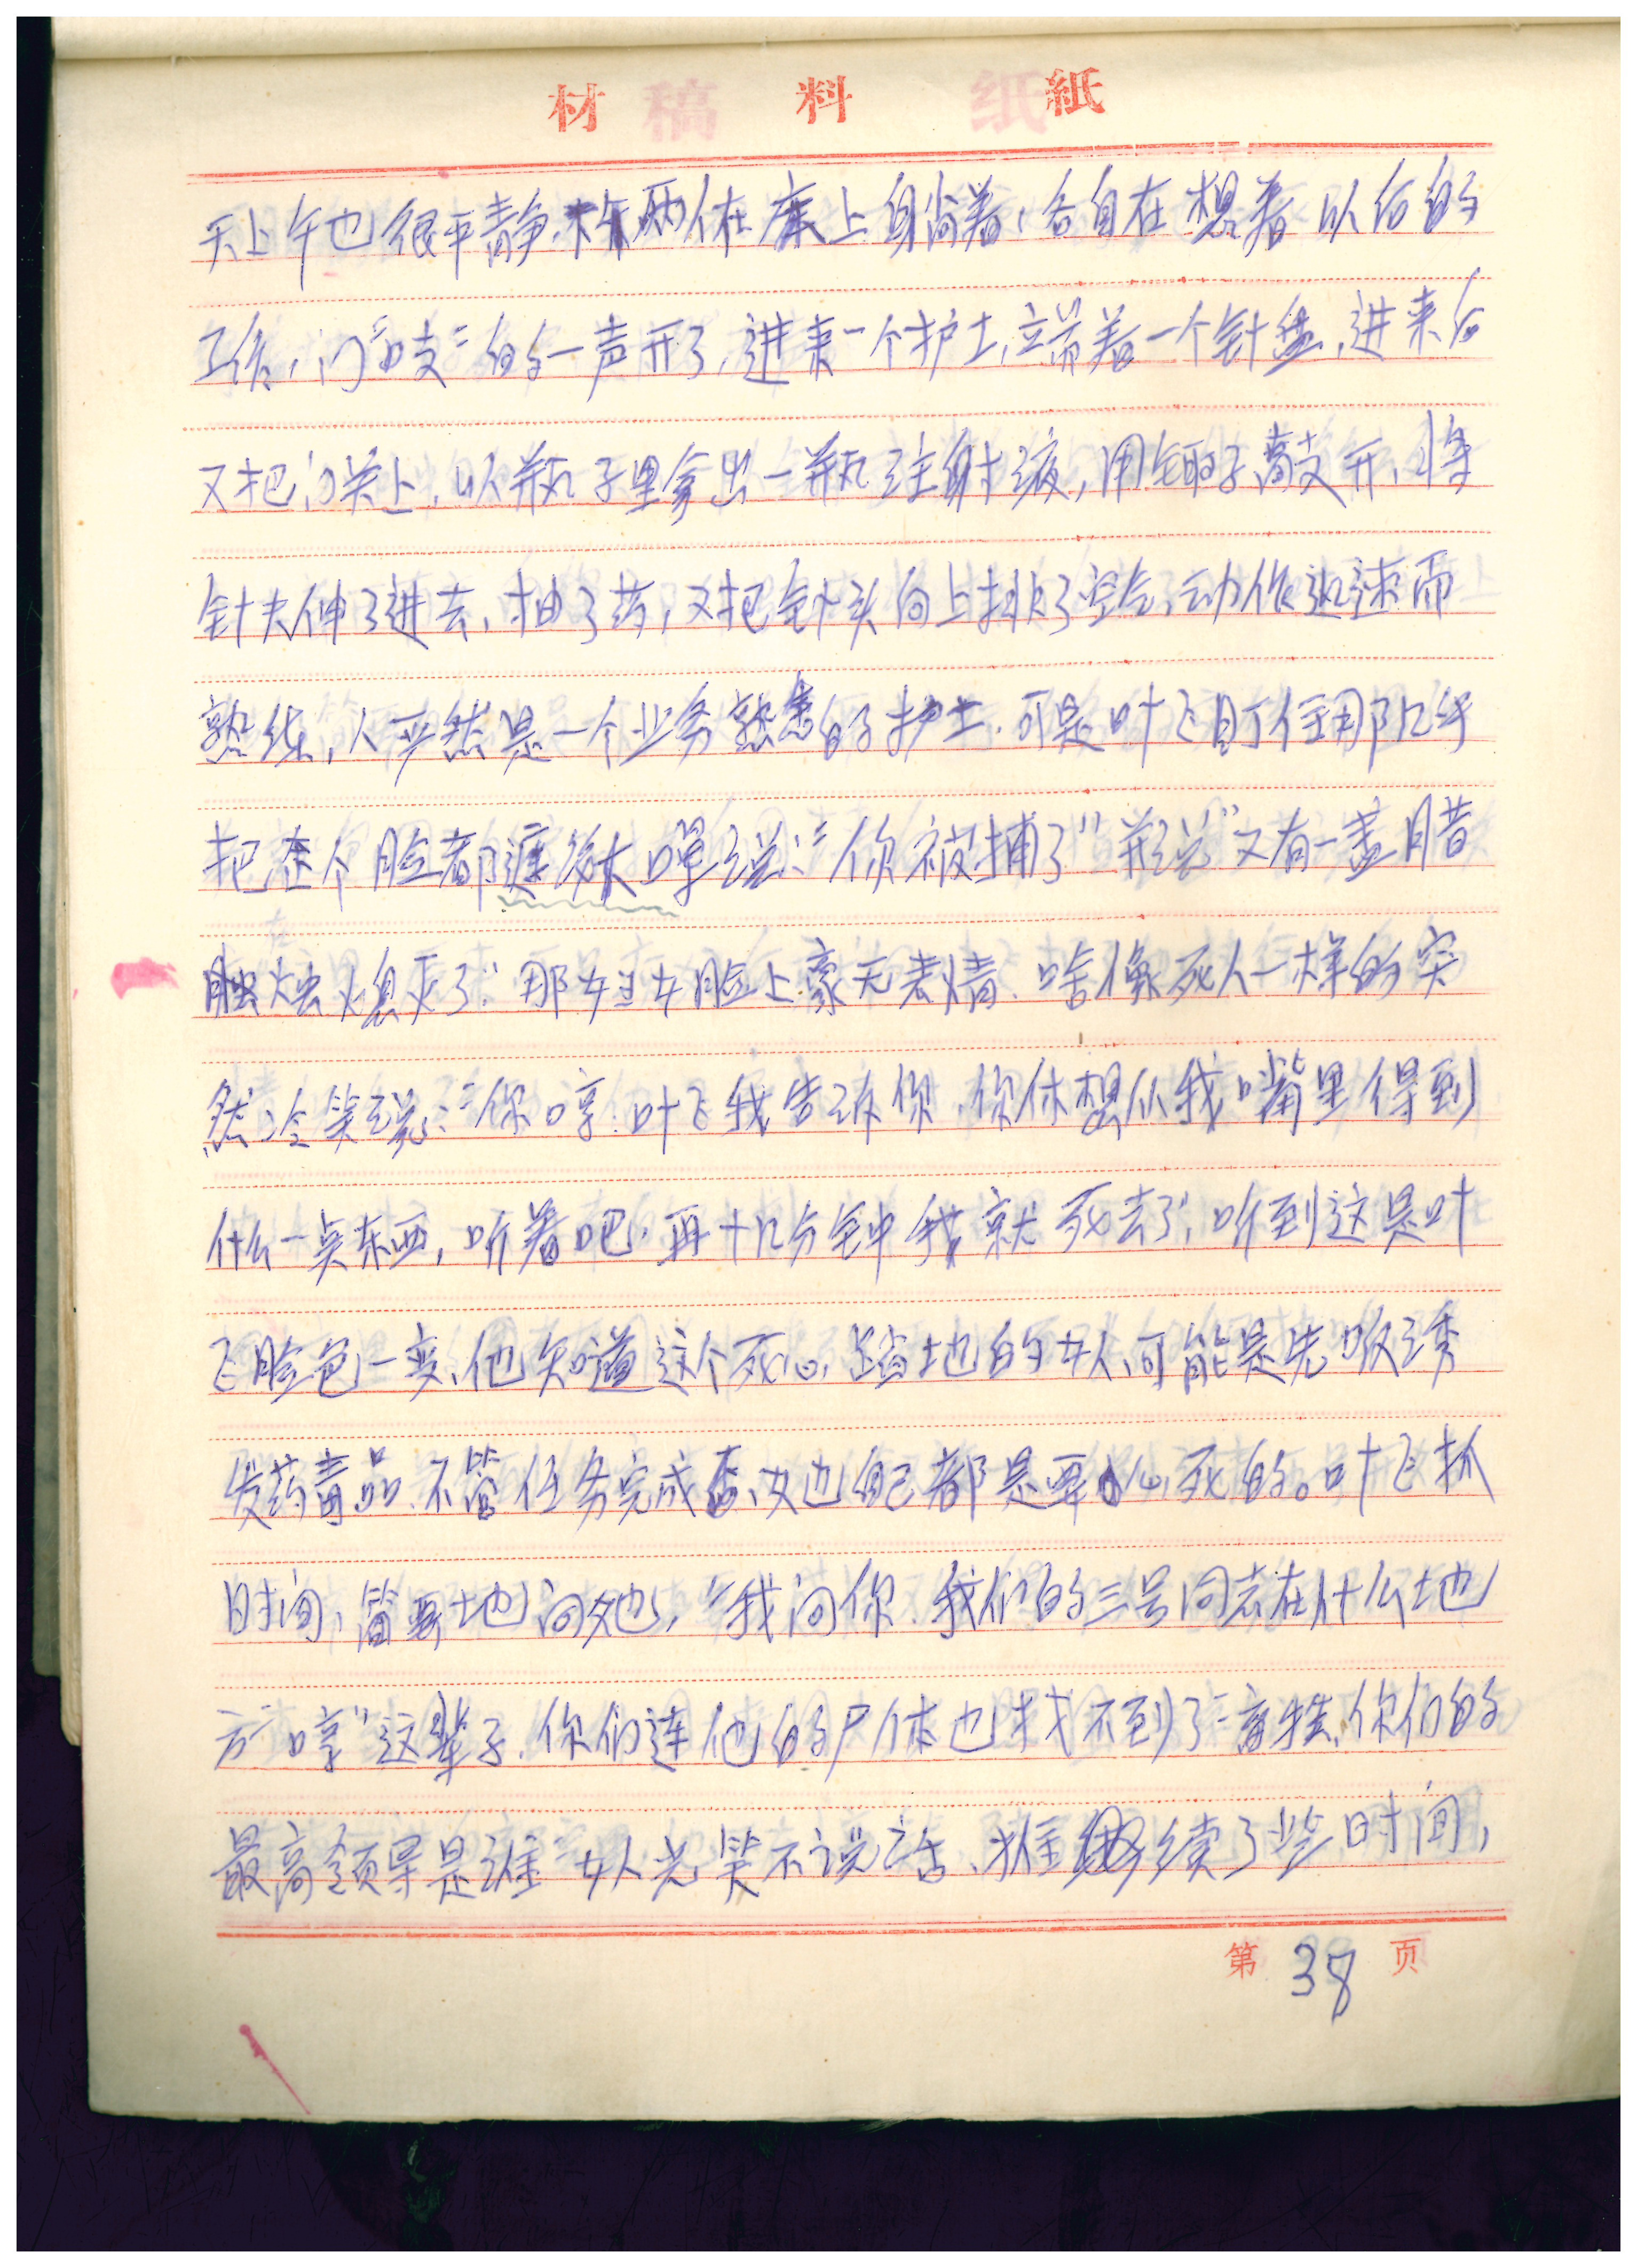 材料紙
天上午也很平静，两人在床上躺着，各自在想着以后的
工作，门“吱”的一声开了，进来一个护士，端着一个针盘，进来后
又把门关上，从瓶子里拿出一瓶注射液，用钳子敲开，将
针头伸了进去，抽了药，又把针头向上排了空气，动作迅速而
熟练，人严然是一个业务熟悉的护士．可是叶飞盯住那几乎
把整个脸都遮的大口罩说：“你被捕了”并说“又有一盏腊
烛熄灭了”那女脸上豪无表情．像死人一样的突
然冷笑说：“你哼：叶飞我告诉你．你休想从我嘴里得到
什么一点东西，听着吧，再十几分钟我就死去了，听到这是叶
飞脸色一变、他知道这个死心踏地的女人、可能是先吸诱
发药毒品．不管任务完成否、她自己都是要死的。叶飞抓
时间，简要地问她，“我问你．我们的三号同志在什么地
方”“哼”这辈子．你们连他的尸体也找不到了”“牺牲．你们的
最高领导是谁”女人光笑不说话、继续了些时间，
第 38 页